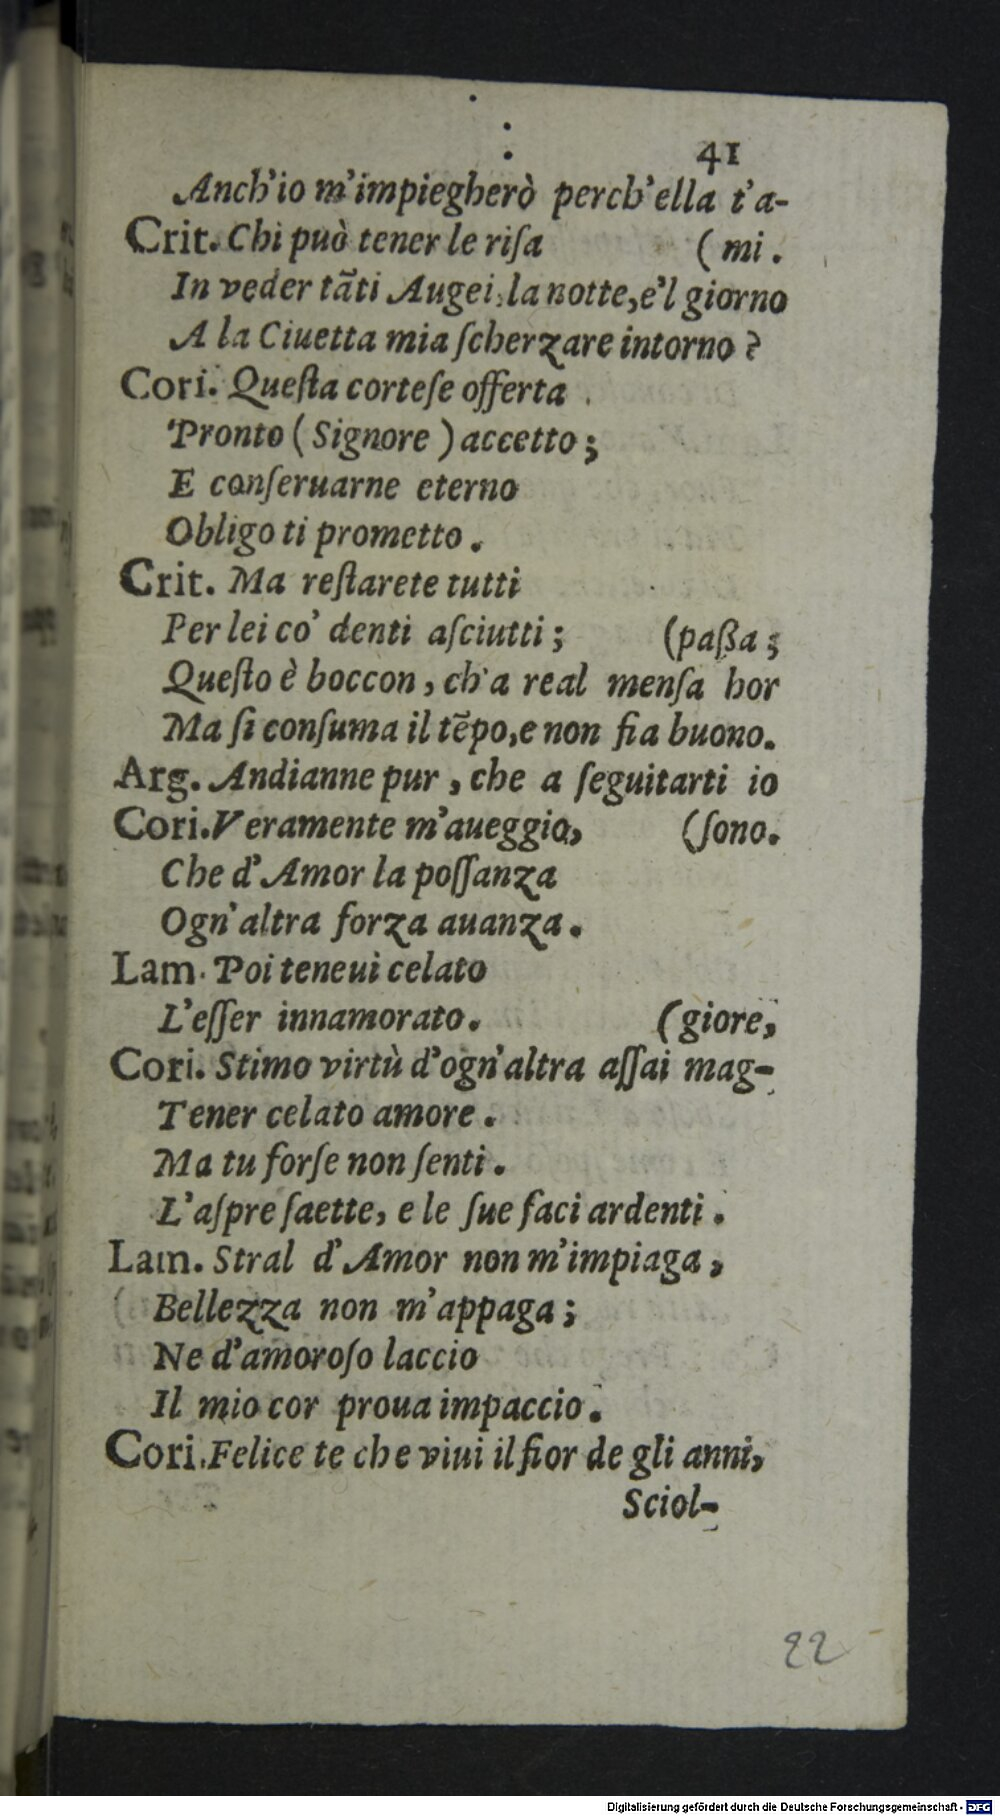 41
Anch'io m'impiegherò perch'ella t'a-
Crit. Chi può tener le riſa (mi.
In veder tãti Augei la notte, e'l giorno
A la Ciuetta mia ſcherzare intorno?
Cori. Queſta corteſe offerta
Pronto (Signore) accetto;
E conſeruarne eterno
Obligo ti prometto.
Crit. Ma reſtarete tutti
Per lei co' denti aſciutti; (paßa;
Queſto è boccon, ch'a real menſa hor
Ma ſi conſuma il tẽpo, e non fia buono.
Arg. Andianne pur, che a ſeguitarti io
Cori. Veramente m'aueggio, (ſono.
Che d'Amor la poſſanza
Ogn'altra forza auanza.
Lam. Poi teneui celato
L'eſſer innamorato. (giore,
Cori. Stimo virtù d'ogn'altra aſſai mag-
Tener celato amore.
Ma tu forſe non ſenti.
L'aſpre ſaette, e le ſue faci ardenti.
Lam. Stral d'Amor non m'impiaga,
Bellezza non m'appaga;
Ne d'amoroſo laccio
Il mio cor proua impaccio.
Cori. Felice te che viui il fior de gli anni,
Sciol-
22
Digitalisierung gefördert durch die Deutsche Forschungsgemeinschaft - DFG